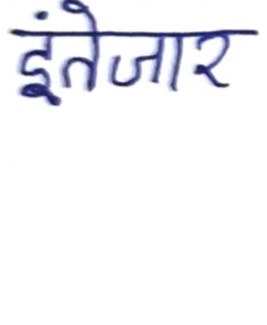 इंतेजार